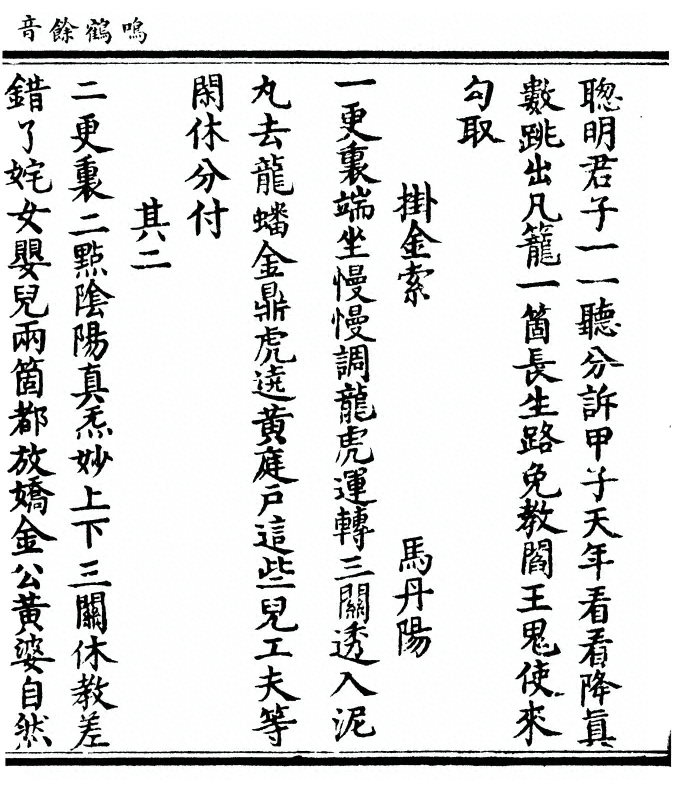 鳴鶴餘音
聰明君子一一聽分訴甲子天年看看降真
數跳出凡籠一箇長生路免教閻王鬼使來
勾取
掛金索 馬丹陽
一更裏端坐慢慢調龍虎運轉三關透入泥
丸去龍蟠金鼎虎遶黃庭戶這些兒工夫等
閑休分付
其二
二更裏二點陰陽真炁妙上下三關休教差
錯了姹女嬰兒兩箇都放嬌金公黃婆自然